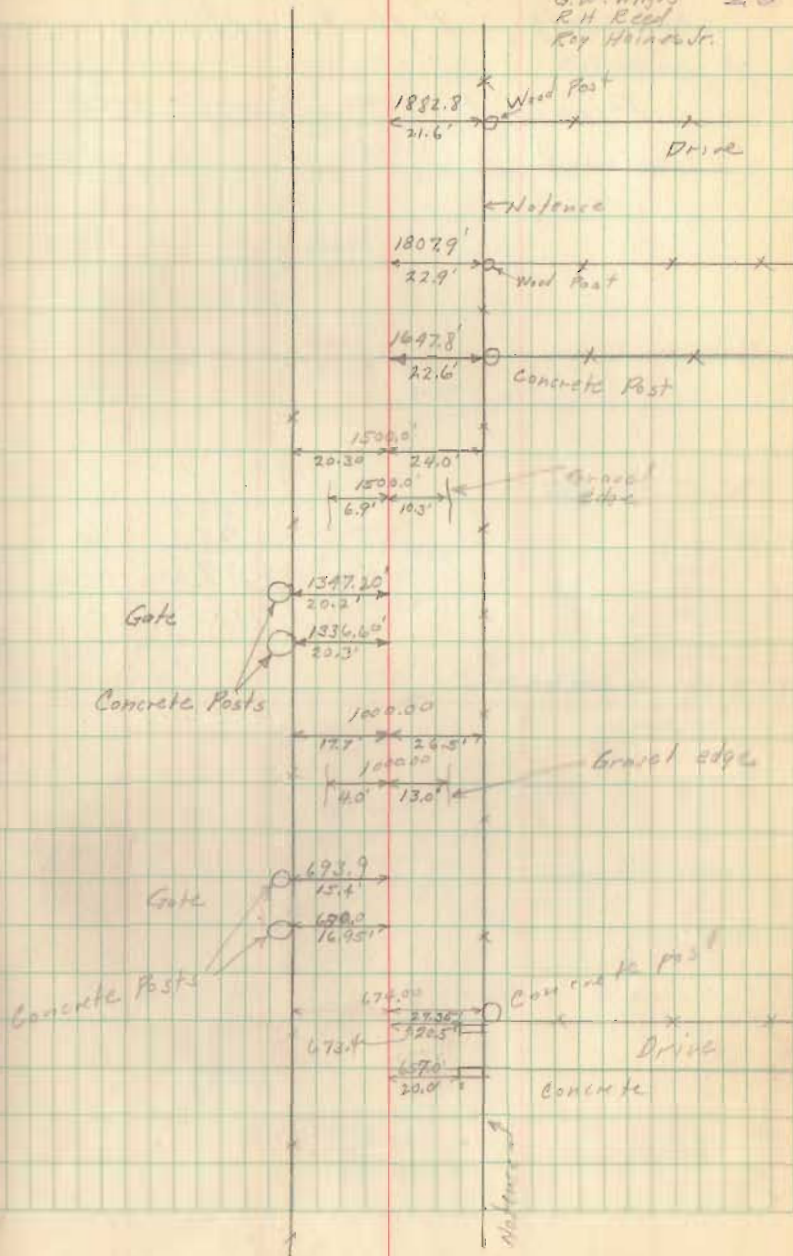 R H Reed
Roy Haines Jr.
1882.8 Wood Post
21.6'
Drive
No fence
1807.9'
22.9' Wood Post
1647.8'
22.6' Concrete Post
1500.0'
20.30 24.0'
1500.0' Gravel
6.9' 10.3' edge
1347.20'
Gate 20.2'
1336.60'
20.3'
Concrete Posts
1000.00
17.7' 26.5'
1000.00 Gravel edge
4.0' 13.0'
693.9
Gate 15.4'
680.0
16.95'
Concrete Posts
674.00 Concrete post
27.35'
673.4 20.5' Drive
657.0'
20.0' Concrete
No fence